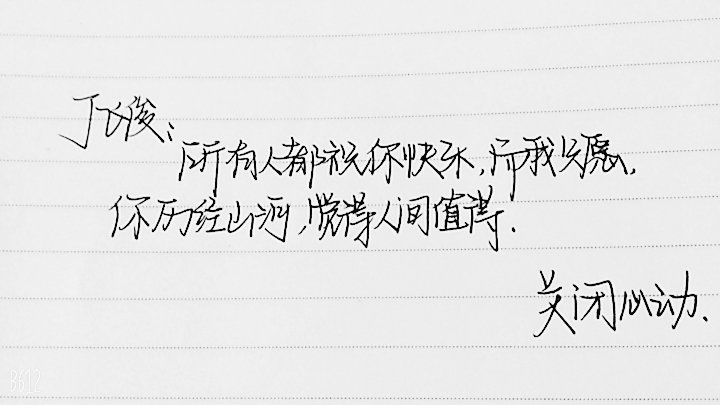 丁飞俊:
所有人都祝你快乐,而我只愿,
你历经山河,觉得人间值得.
关闭心动.
B612